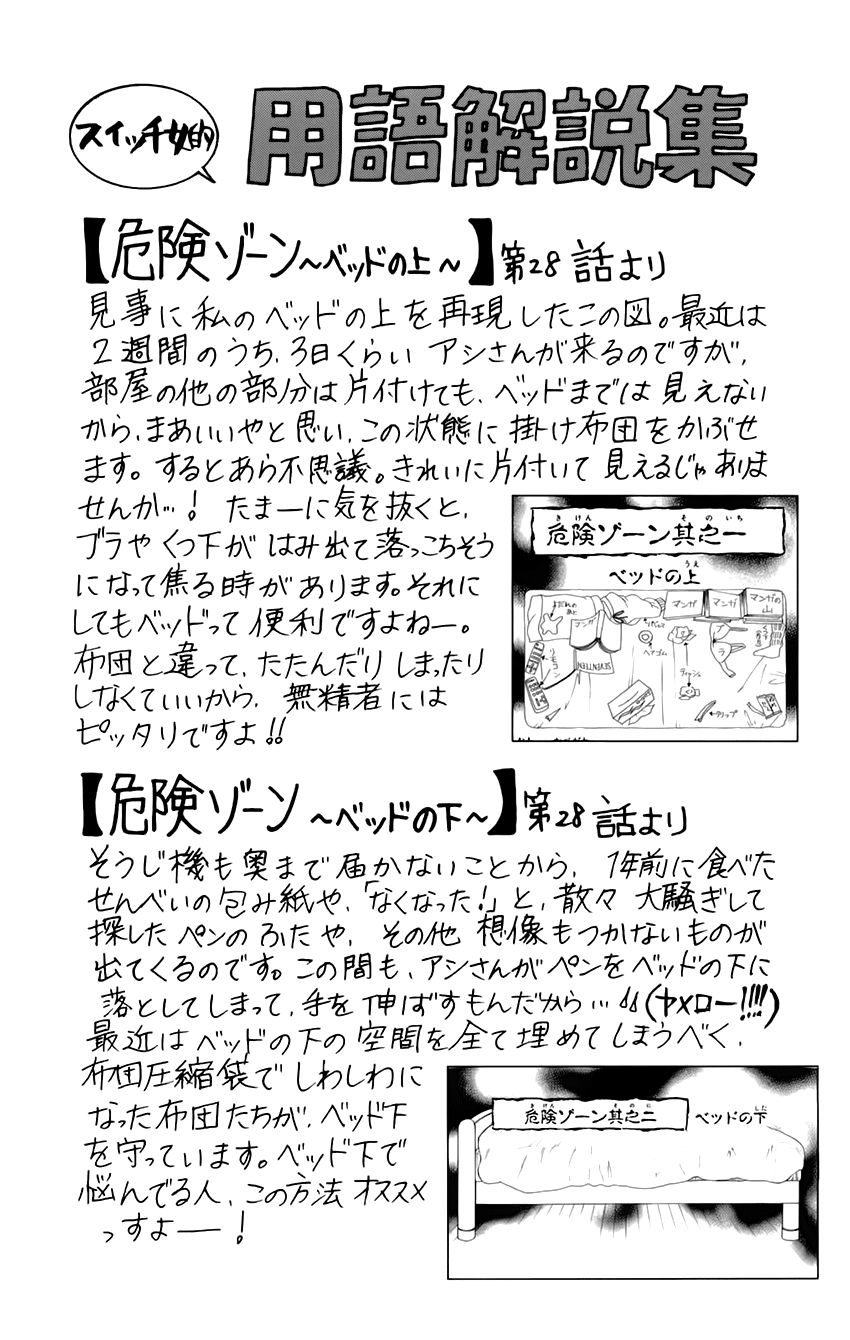 スイッチ女的
用語解説集
【危険ゾーン～ベッドの上～】第28話より
見事に私のベッドの上を再現したこの図。最近は
2週間のうち、3日くらいアシさんが来るのですが、
部屋の他の部分は片付けても、ベッドまでは見えない
から、まあいいやと思い、この状態に掛け布団をかぶせ
ます。するとあら不思議。きれいに片付いて見えるじゃありま
せんか…！ たまーに気を抜くと、
ブラやくつ下がはみ出て落っこちそう
になって焦る時があります。それに
してもベッドって便利ですよねー。
布団と違って、たたんだりしまったり
しなくていいから、無精者には
ピッタリですよ!!
きけん そのいち
危険ゾーン其之一
うえ
ベッドの上
よだれのあと
マンガ
リモコン
SEVENTEEN
ヘアゴム
ティッシュ
クリップ
マンガ
マンガ
マンガの山
【危険ゾーン～ベッドの下～】第28話より
そうじ機も奥まで届かないことから、1年前に食べた
せんべいの包み紙や、「なくなった!」と、散々大騒ぎして
探したペンのふたや、その他想像もつかないものが
出てくるのです。この間も、アシさんがペンをベッドの下に
落としてしまって、手を伸ばすもんだから…(ヤメロー!!!!)
最近はベッドの下の空間を全て埋めてしまうべく、
布団圧縮袋でしわしわに
なった布団たちが、ベッド下
を守っています。ベッド下で
悩んでる人、この方法オススメ
っすよ――！
きけん そのに
危険ゾーン其之二
した
ベッドの下